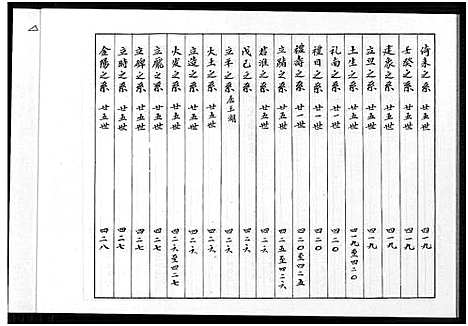 倚来之系 廿五世 四一九
壬癸之系 廿五世 四一九
建家之系 廿五世 四一九
立丑之系 廿五世 四一九
土生之系 廿五世 四一九至四二0
礼南之系 廿一世 四二0
禮日之系 廿一世 四二0
禮壽之系 廿一世 四二0至四二五
立賭之系 廿五世 四二五至四二六
若淮之系 廿五世 四二六
戊己之系 廿五世 四二六
立羊之系 居玉湖 四二六
大土之系 廿五世 四二六
立造之系 廿五世 四二六
火炭之系 廿五世 四二六至四二七
立龐之系 廿五世 四二七
立碑之系 廿五世 四二七
立時之系 廿五世 四二七
金陽之系 廿五世 四二八